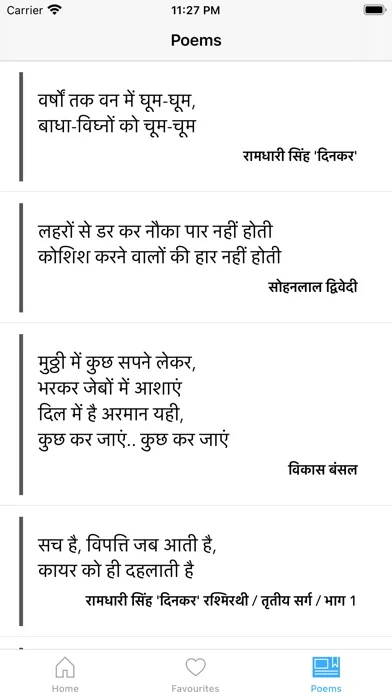 Carrier 11:27 PM
Poems
वर्षों तक वन में घूम-घूम,
बाधा-विघ्नों को चूम-चूम
रामधारी सिंह 'दिनकर'
लहरों से डर कर नौका पार नहीं होती
कोशिश करने वालों की हार नहीं होती
सोहनलाल द्विवेदी
मुठ्ठी में कुछ सपने लेकर,
भरकर जेबों में आशाएं
दिल में है अरमान यही,
कुछ कर जाएं.. कुछ कर जाएं
विकास बंसल
सच है, विपत्ति जब आती है,
कायर को ही दहलाती है
रामधारी सिंह 'दिनकर' रश्मिरथी / तृतीय सर्ग / भाग 1
Home Favourites Poems